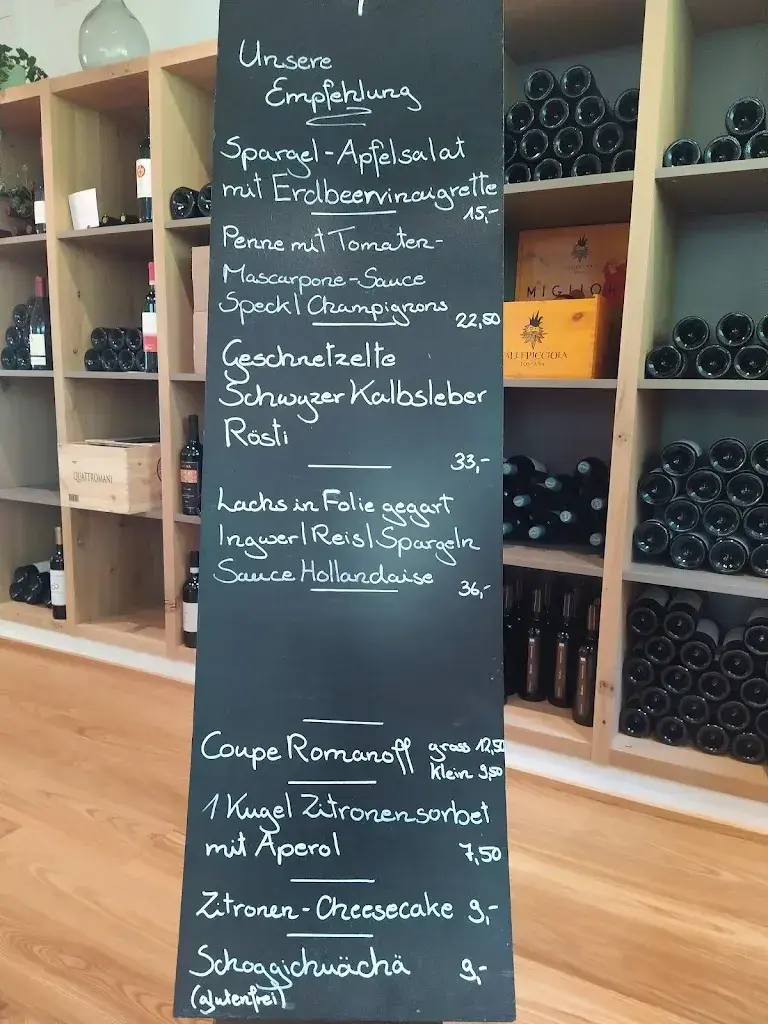 Unsere
Empfehlung
Spargel-Apfelsalat
mit Erdbeervinaigrette
15,-
Penne mit Tomaten-
Mascarpone-Sauce
Speck | Champignons
22,50
Geschnetzelte
Schwyzer Kalbsleber
Rösti
33,-
Lachs in Folie gegart
Ingwer | Reis | Spargeln
Sauce Hollandaise
36,-
Coupe Romanoff gross 12,50
klein 9,50
1 Kugel Zitronensorbet
mit Aperol 7,50
Zitronen-Cheesecake 9,-
Schoggichuächä 9,-
(glutenfrei)
QUATTROMANI
MIGLIOR
VALLEPICCIOLA